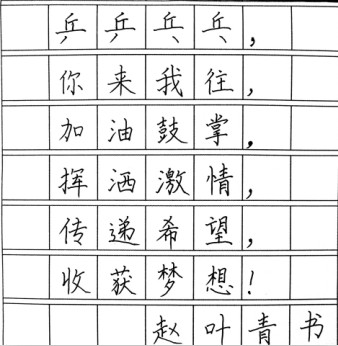 乒乒乓乓,
你来我往,
加油鼓掌,
挥洒激情,
传递希望,
收获梦想!
赵叶青书